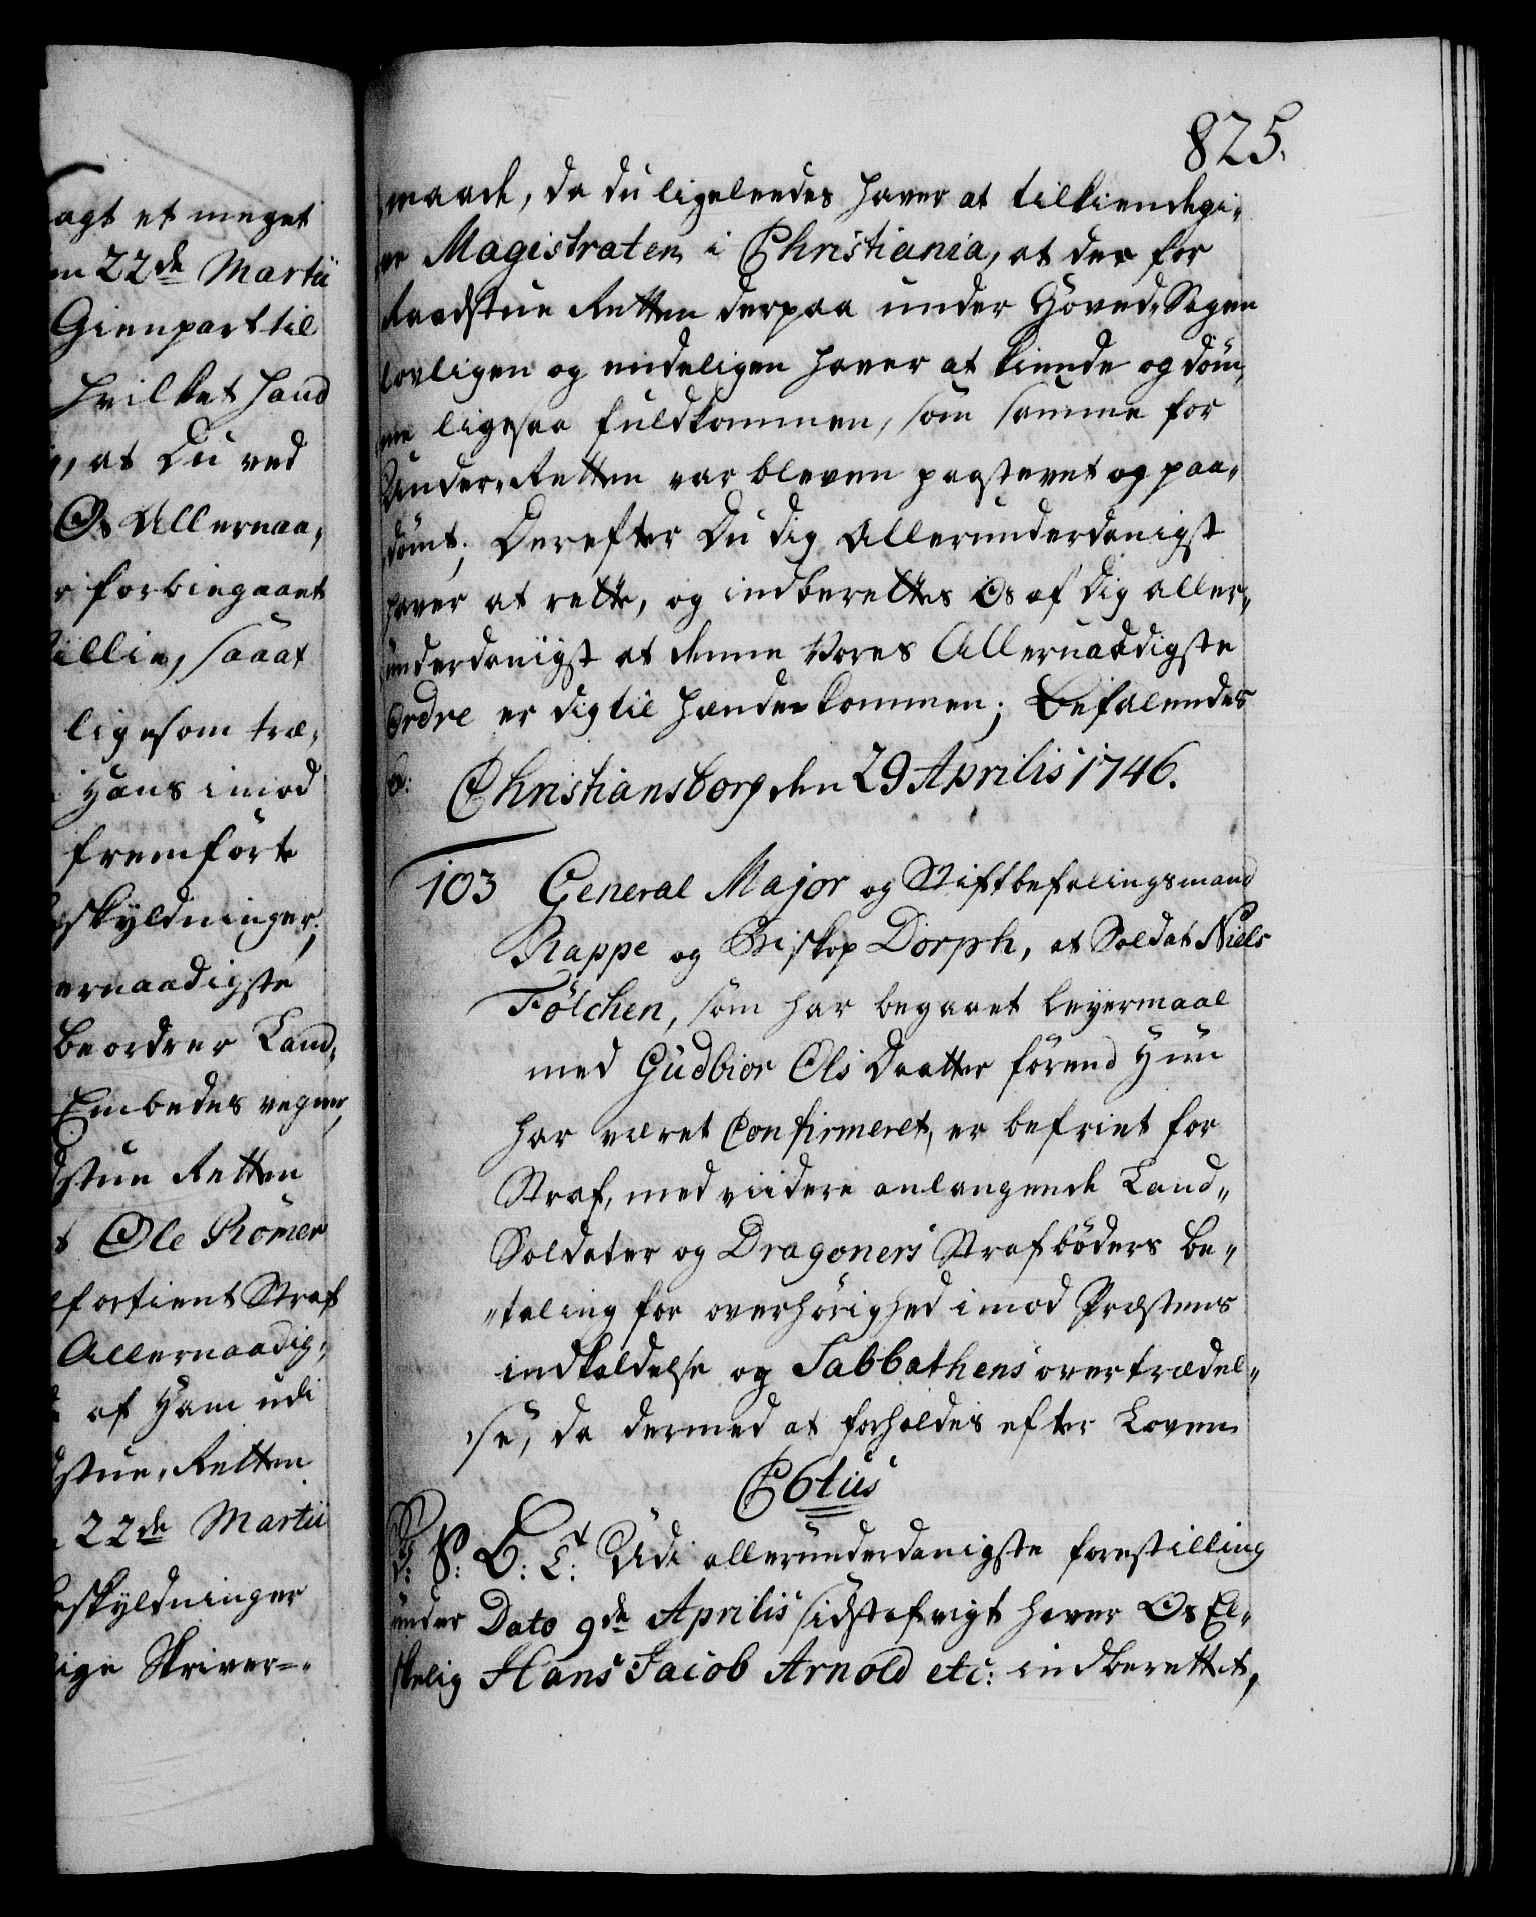 agt et meget
22de Martii
Gienpart til
hvilket hand
, at Du ved
Os Allernaa„
forbiegaaet
illie, saaat
ligesom træ„
Hans imod
fremførte
skyldninger;
ernaadigste
beordrer Land„
Embedes vegne,
stue Retten
Ole Römer
fortient Straf
Allernaadig„
af Ham udi
stue-Retten
22de Martii
skyldninger
lige Skriver=„
825.
maade, da du ligeleedes haver at tilkiendegi„
ve Magistraten i Christiania, at der for
Raadstue Retten derpaa under Hoved-Sagen
lovligen og endeligen haver at kiende og döm„
me ligesaa fuldkommen, som samme for
Under-Retten var bleven paastevnt og paa„
dömt; Derefter Du dig Allerunderdanigst
haver at rette, og indberettes Os af dig aller„
underdanigst at denne Vores Allernaadigste
Ordre er dig til hænde kommen; Befalendes
Christiansborg den 29 Aprilis 1746.
103 General Major og Stiftbefalingsmand
Rappe og Biskop Dorph, at Soldat Niels
Fölchen, som har begaaet Leyermaal
med Gudbior Ols Daatter förend Hun
har været Confirmeret, er befriet for
Straf, med viidere anlangende Land„
Soldater og Dragoners Straf böders be„
„taling for overhörighed imod Præstens
indkaldelse og Sabbathens overtrædel„
„se, da dermed at forholdes efter Loven
C6tus
Udi allerunderdanigste forestilling
under Dato 9de Aprilis sidstafvigt haver Os El„
skelig Hans Jacob Arnold etc: indberettet,